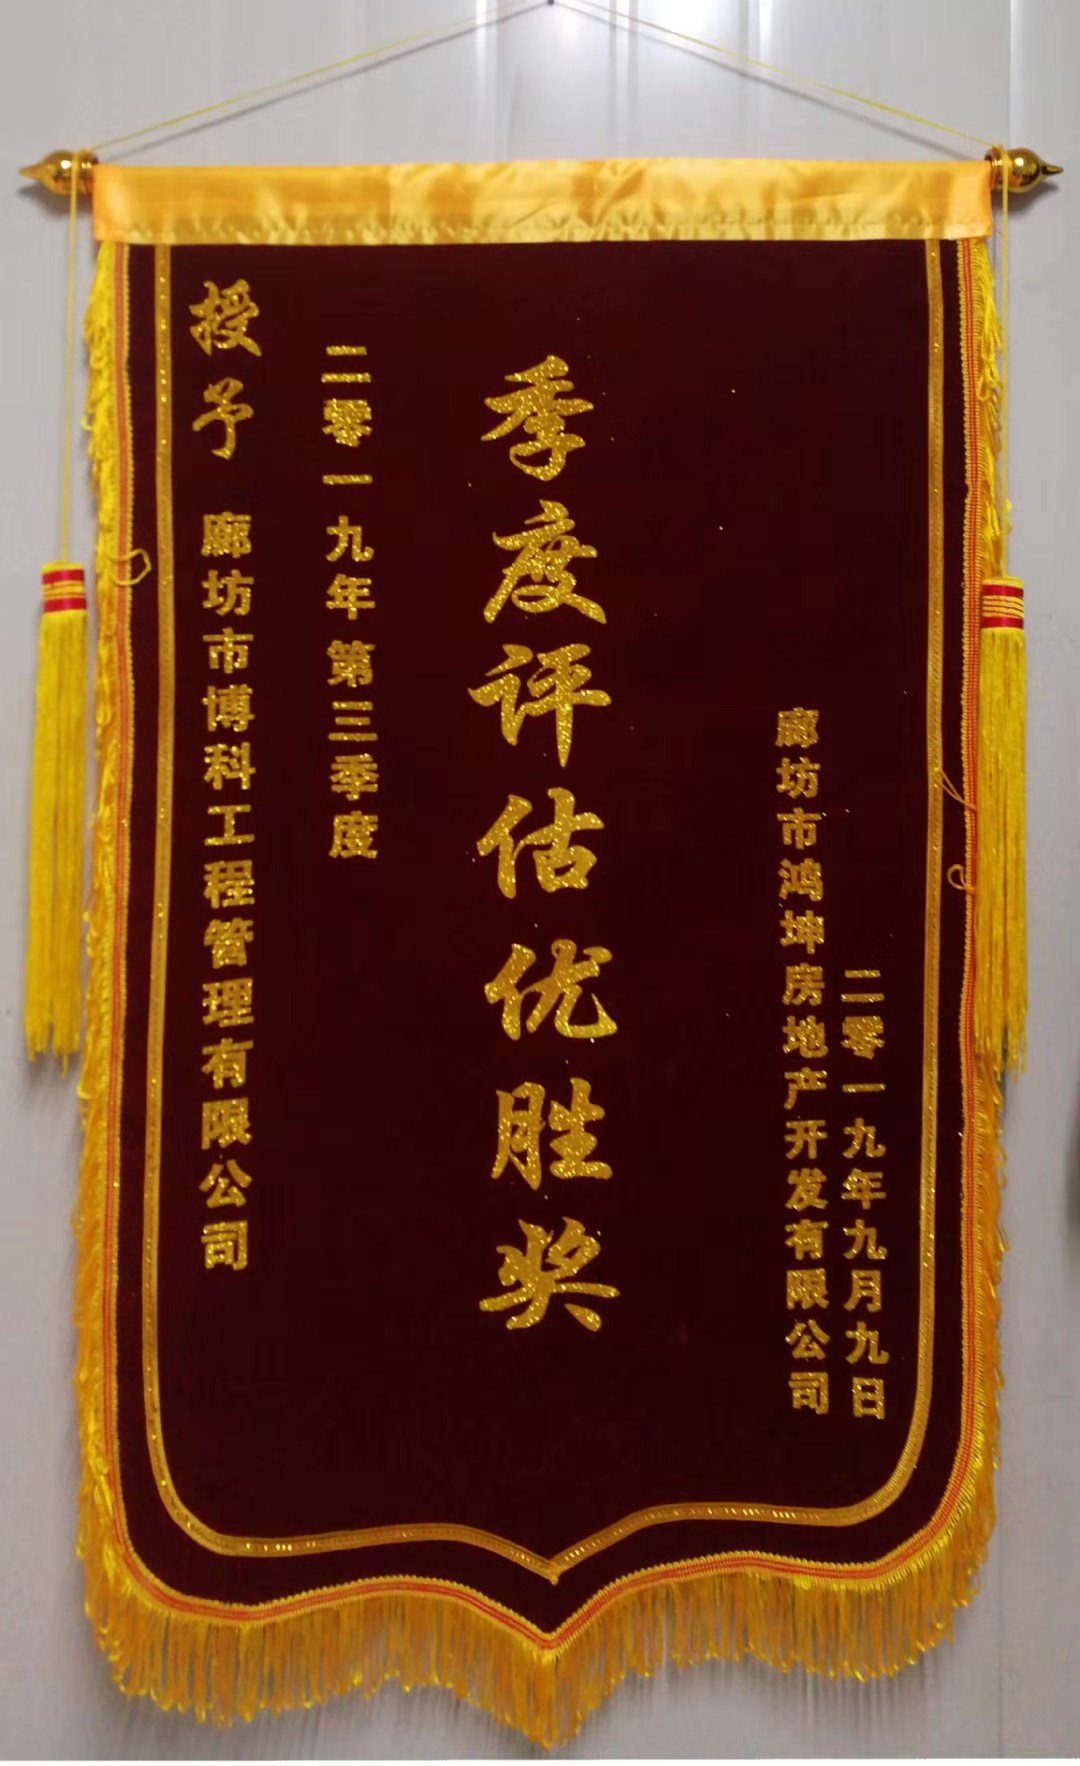 授予 廊坊市博科工程管理有限公司
二零一九年第三季度
季度评估优胜奖
廊坊市鸿坤房地产开发有限公司
二零一九年九月九日